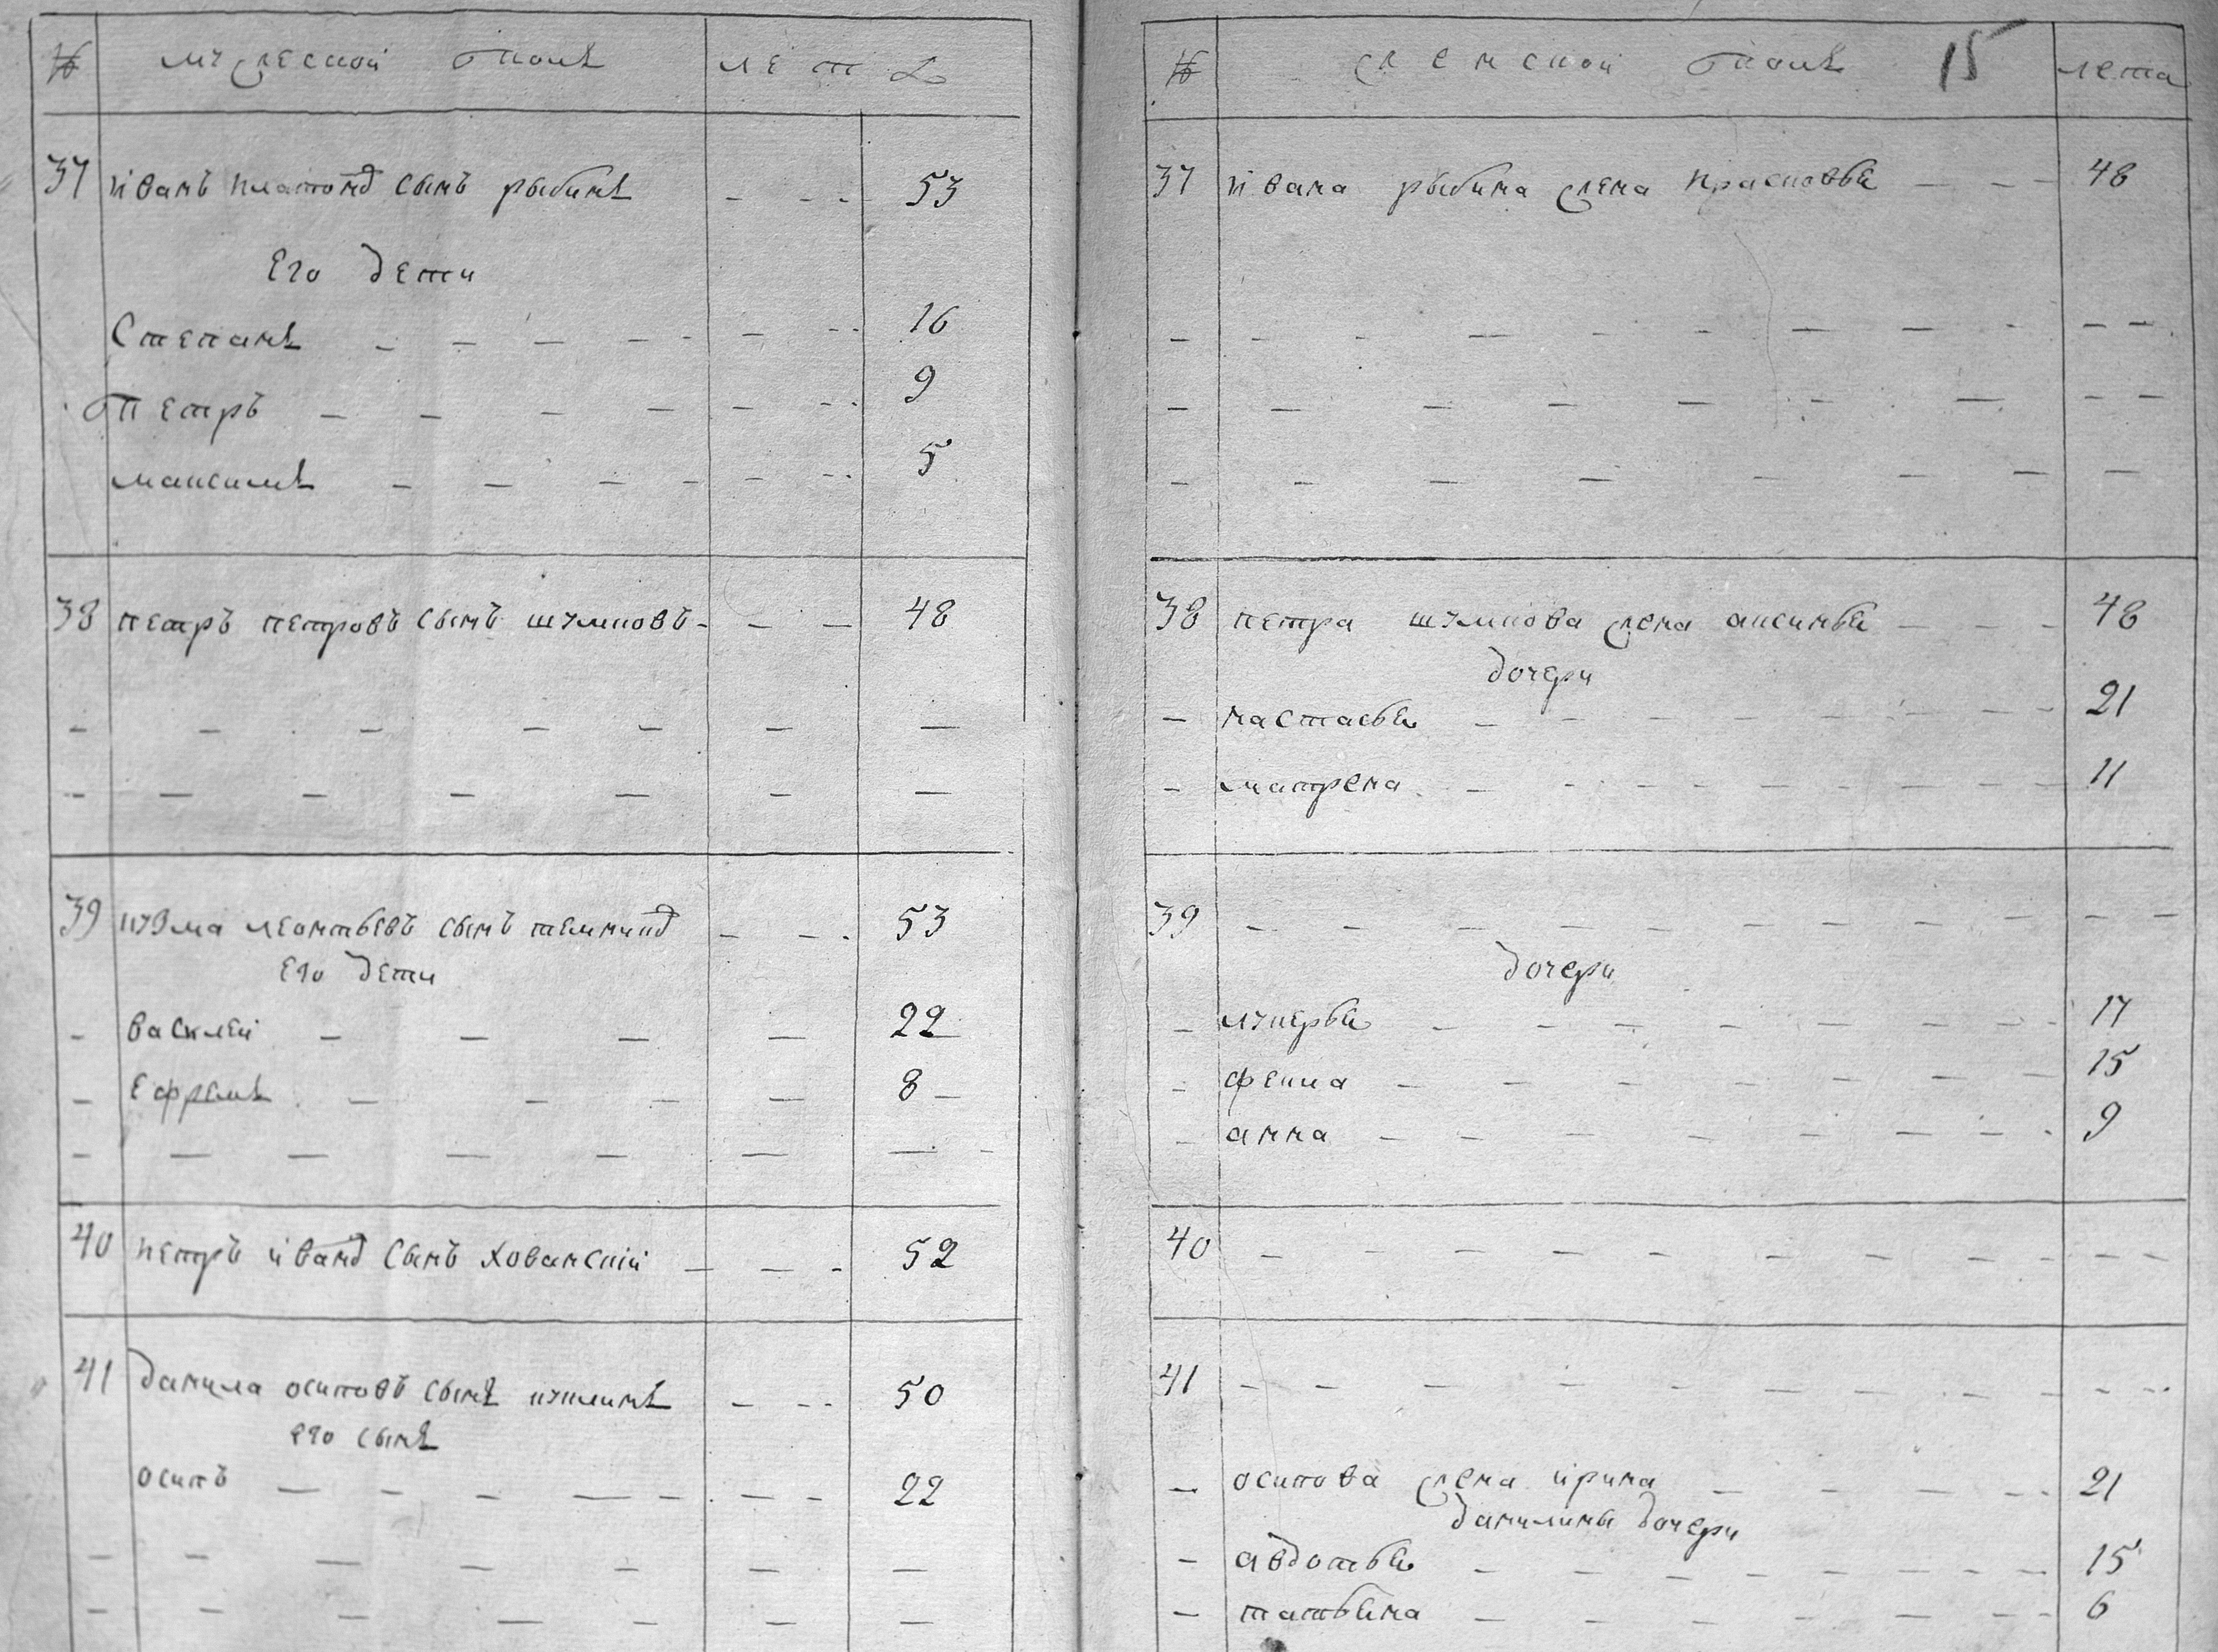 № мужескои полъ лета
37 иванъ платоновъ сынъ рыбинъ - - - 53
Его дети
Степанъ - - - 16
Петръ - - - 9
максимъ - - - 5
38 петръ петровъ сынъ шумновъ - - - 48
39 кузма леонтьевъ сынъ темниковъ - - - 53
Его дети
василеи - - - 22
Ефремъ - - - 8
40 петръ ивановъ сынъ хованскіи - - - 52
41 данила осиповъ сынъ кушлинъ - - - 50
его сынъ
осипъ - - - 22
№ женскои полъ 15 лета
37 ивана рыбина жена прасковья - - - 48
38 петра шумнова жена аксинья - - - 48
дочери
настасья - - - 21
матрена - - - 11
39 - - -
дочери
лукерья - - - 17
фекла - - - 15
анна - - - 9
40 - - -
41 - - -
осипова жена ирина - - - 21
данилины дочери
авдотья - - - 15
татьяна - - - 6